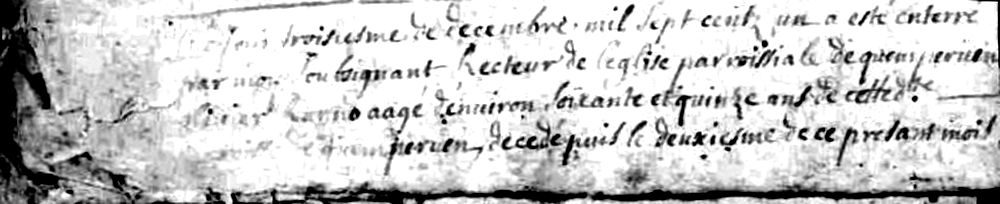 Ce Jour troisiesme de decembre mil sept cent un a esté enterré
par moy soubsignant Recteur de leglise parroissiale de quemperven
aagé denviron soixante et quinze ans de cette dtte
quemperven, decedé puis le deuxiesme de ce presant mois